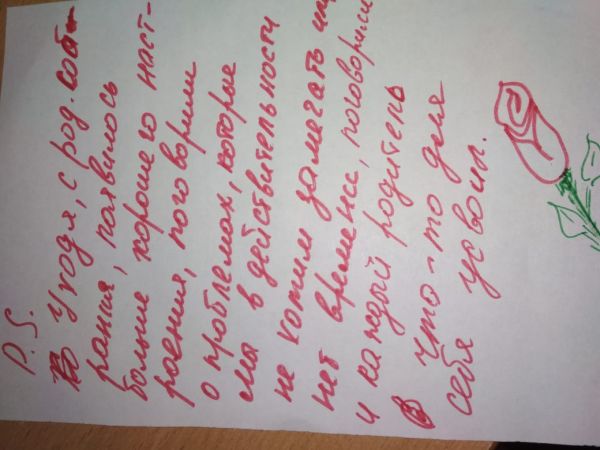 P.S.
Уходя, с род. соб-
рания, появилось
больше хорошего наст-
роения, поговорили
о проблемах, которые
мы в действительности
не хотим замечать или
нет времени, поговорили
и каждый родитель
что-то для
себя усвоил.